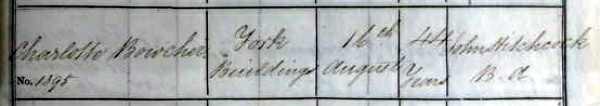 Charlotte Bowcher York 16th 44 John Hitchcock
No. 1395 Buildings August Years B. A